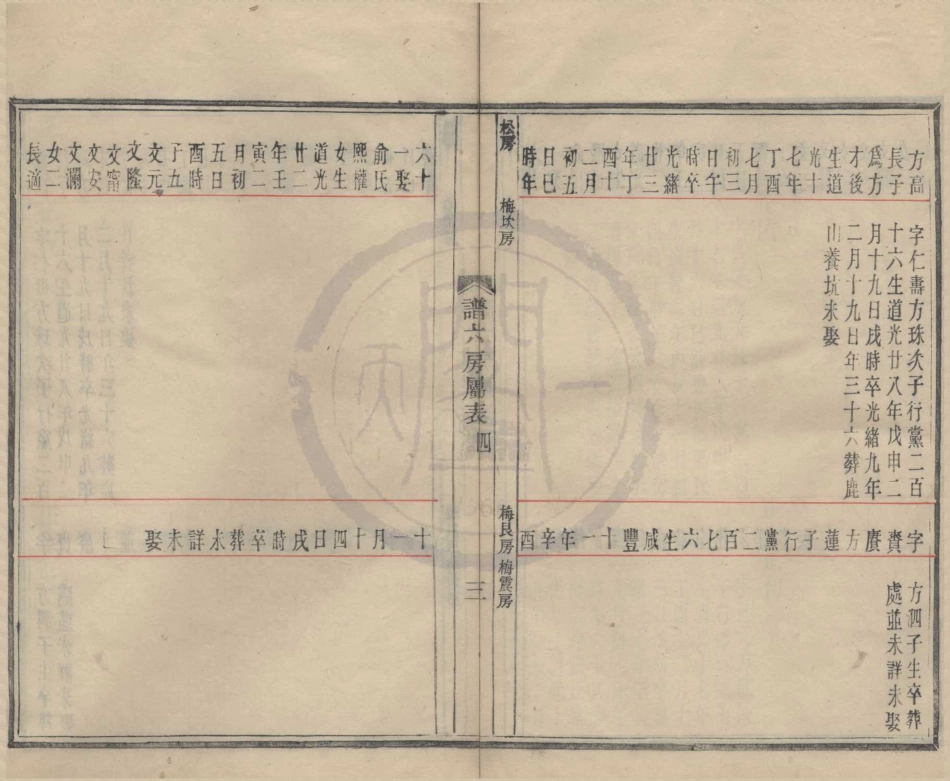 方高
長子
爲方
才後
生道
光十
七年
丁酉
七月
初三
日午
時卒
光緒
廿三
年丁
酉十
二月
初五
日巳
時年
字仁壽方珠次子行黨二百
十六生道光廿八年戊申二
月十九日戌時卒光緒九年
二月十九日年三十六葬鹿
山養坑未娶
字賚賡方蓮子行黨二百七六生咸豐十一年辛酉
方泗子生卒葬
處並未詳未娶
松房
梅坎房
梅艮房
梅震房
譜六房屬表
四
三
六十
一娶
俞氏
熙權
女生
道光
廿二
年壬
寅二
月初
五日
酉時
子五
文元
文隆
文甯
文安
文瀾
女二
長適
十一月十四日戌時卒葬未詳未娶